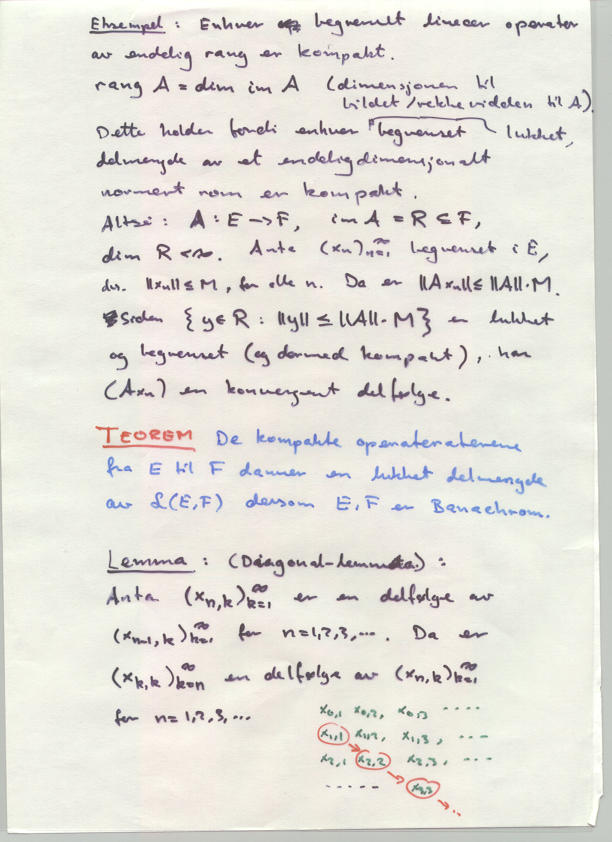 Eksempel : Enhver begrenset lineær operator
av endelig rang er kompakt.
rang A = dim im A (dimensjonen til
bildet/rekkevidden til A).
Dette holder fordi enhver begrenset lukket,
delmengde av et endeligdimensjonalt
normert rom er kompakt.
Altså : A : E → F, im A = R ⊆ F,
dim R < ∞. Anta (xₙ)ₙ₌₁^∞ begrenset i E,
dvs. ||xₙ|| ≤ M, for alle n. Da er ||Axₙ|| ≤ ||A||·M.
Siden {y ∈ R : ||y|| ≤ ||A||·M} er lukket
og begrenset (og dermed kompakt), har
(Axₙ) en konvergent delfølge.
TEOREM De kompakte operatoraterene
fra E til F danner en lukket delmengde
av ℒ(E,F) dersom E, F er Banachrom.
Lemma : (Diagonal-lemma) :
Anta (x_{n,k})_{k=1}^∞ er en delfølge av
(x_{n-1,k})_{k=1}^∞ for n=1,2,3,.... Da er
(x_{k,k})_{k=n}^∞ en delfølge av (x_{n,k})_{k=1}^∞
for n=1,2,3,...
x_{0,1} x_{0,2}, x_{0,3} ....
x_{1,1} x_{1,2}, x_{1,3}, ...
x_{2,1} x_{2,2} x_{2,3}, ...
..... x_{3,3}